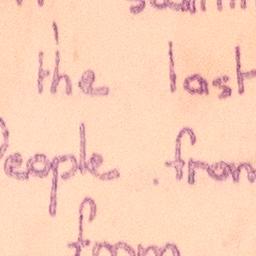 the last
People from
from